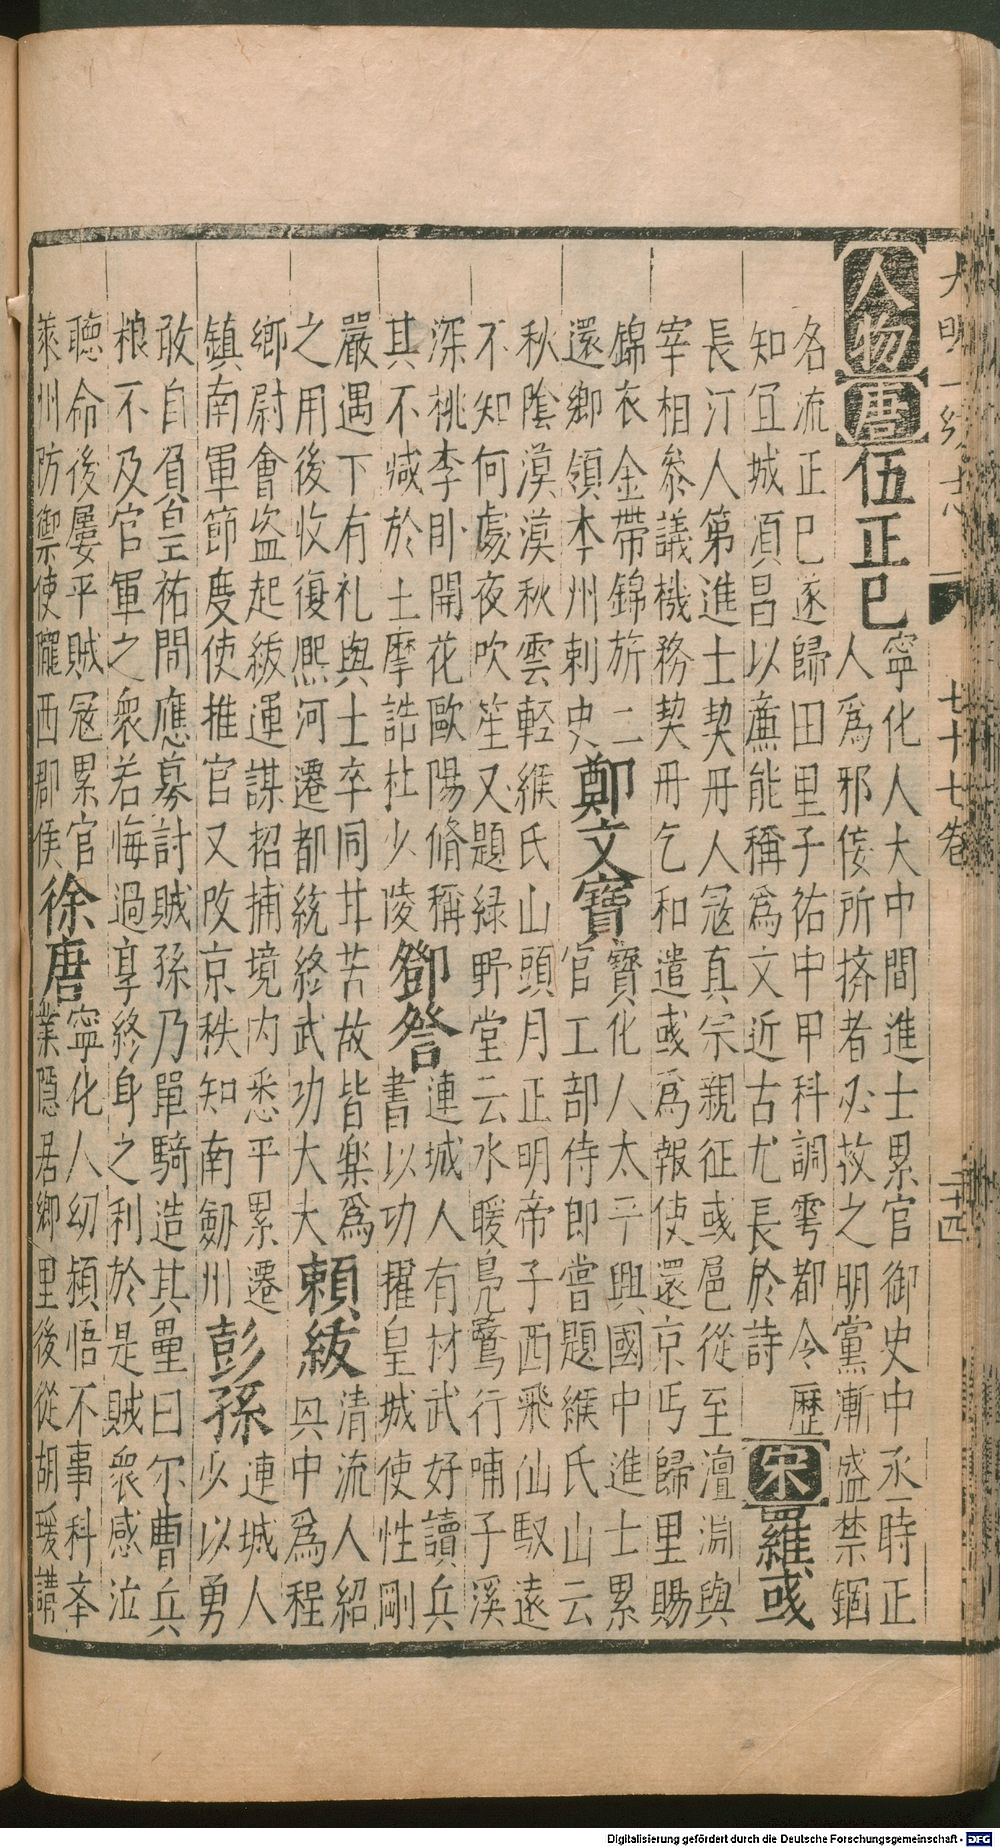 大明一統志 七十七卷 二十四
人物唐伍正已
寧化人大中間進士累官御史中丞時正
人爲邪倿所擠者必救之朋黨漸盛禁錮
名流正巳遂歸田里子祐中甲科調雩都令歷
知宜城湏昌以亷能稱爲文近古尤長於詩宋羅彧
長汀人第進士契丹人㓂真宗親征彧扈從至澶淵與
宰相叅議機務契丹乞和遣彧爲報使還京丐歸里賜
錦衣金帶錦旂二鄭文寶寶化人太平興國中進士累
還鄉領本州刺史官工部侍郎嘗題緱氏山云
秋陰漠漠秋雲輕緱氏山頭月正明帝子西飛仙馭遠
不知何處夜吹笙又題緑野堂云水暖鳬鷖行哺子溪
深桃李卧開花歐陽脩稱鄧詧連城人有材武好讀兵
其不减於王摩詰杜少陵書以功擢皇城使性剛
嚴遇下有礼與士卒同甘苦故皆樂爲賴紱清流人紹
之用後收復熈河遷都統終武功大夫中爲程
鄉尉會盗起紱運謀招捕境内悉平累遷彭孫連城人
鎮南軍節度使推官又改京秩知南劒州少以勇
敢自負皇祐間應募討賊孫乃單騎造其壘曰尓曹兵
粮不及官軍之衆若悔過享終身之利於是賊衆感泣
聴命後屢平賊㓂累官徐唐寧化人幼頴悟不事科本
萊州防禦使隴西郡侯業隠居鄉里後從胡瑗講
Digitalisierung gefördert durch die Deutsche Forschungsgemeinschaft - DFG